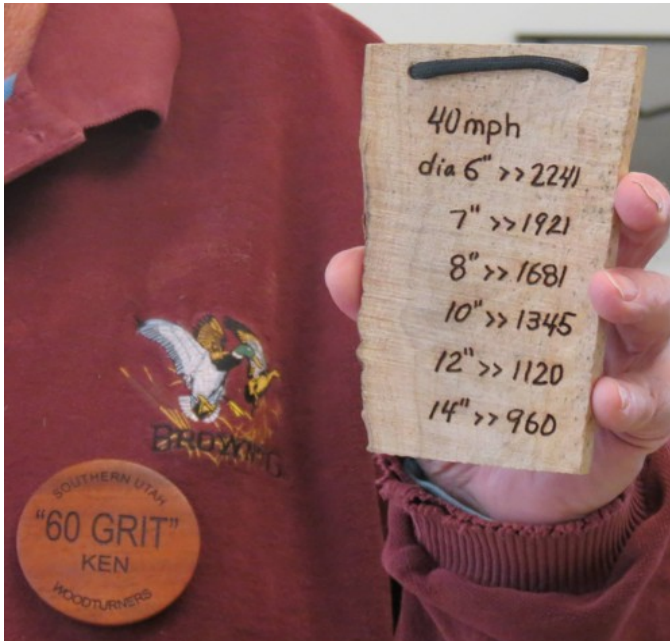 40 mph
dia 6" >> 2241
7" >> 1921
8" >> 1681
10" >> 1345
12" >> 1120
14" >> 960
BROWNING
SOUTHERN UTAH
"60 GRIT"
KEN
WOODTURNERS